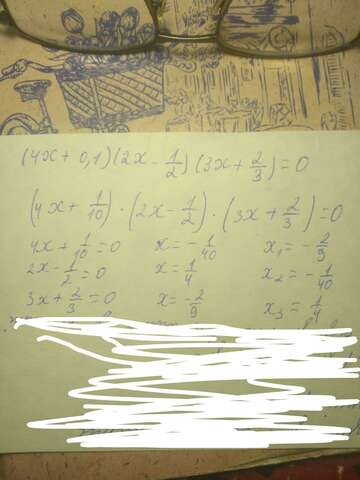 (4x + 0,1)(2x - 1/2)(3x + 2/3) = 0
(4x + 1/10) · (2x - 1/2) · (3x + 2/3) = 0
4x + 1/10 = 0 x = - 1/40 x₁ = - 2/9
2x - 1/2 = 0 x = 1/4 x₂ = - 1/40
3x + 2/3 = 0 x = - 2/9 x₃ = 1/4